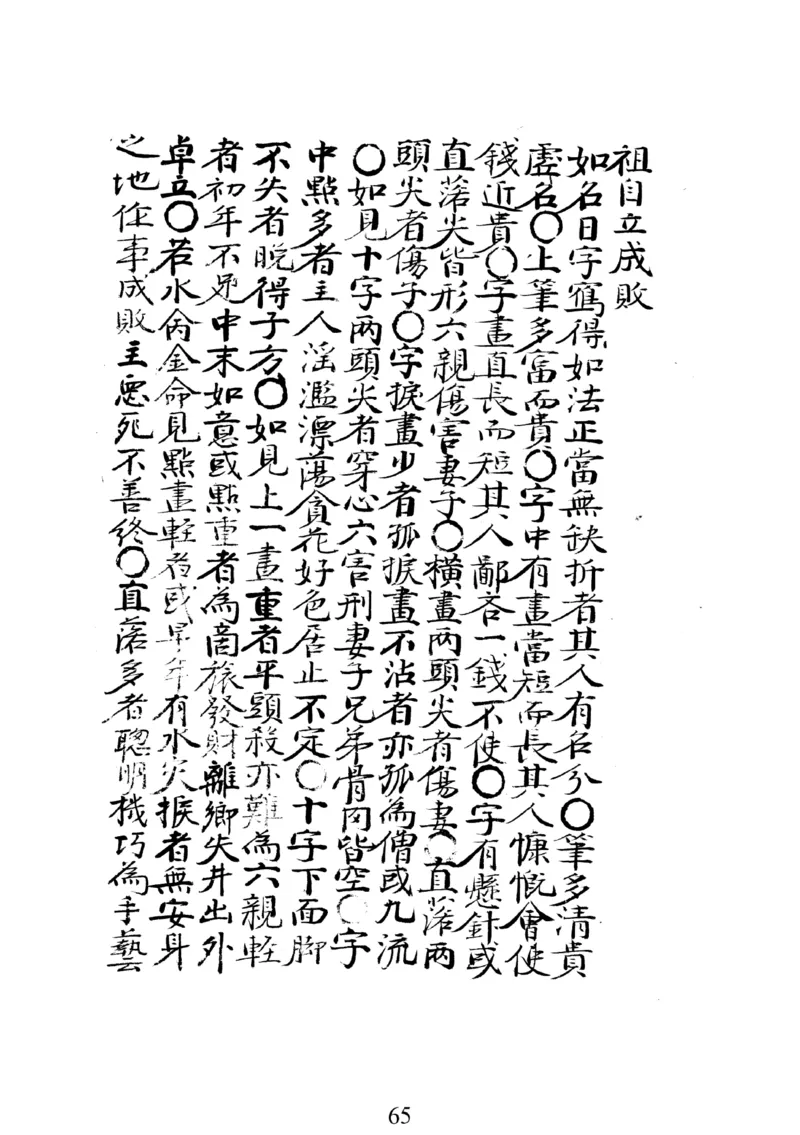 祖自立成敗
如名日字寫得如法正當無缺折者其人有名分〇筆多清貴
虛名〇上筆多富而貴〇字中有畫當短而長其人慷慨會使
錢近貴〇字畫直長而短其人鄙吝一錢不使〇字有懸針或
直落尖皆形六親傷害妻子〇橫畫兩頭尖者傷妻〇直落兩
頭尖者傷子〇字捩畫少者孤捩畫不沾者亦孤為僧或九流
〇如見十字兩頭尖者穿心六害刑妻子兄弟骨肉皆空〇字
中點多者主人淫濫漂蕩貪花好色居止不定〇十字下面脚
不失者晚得子方〇如見上一畫重者平頭殺亦難為六親輊
者初年不足中末如意或點重者為商旅發財離鄉失井出外
卓立〇若水命金命見點畫輊者或早年有水災捩者無安身
之地作事成敗主惡死不善終〇直落多者聰明機巧為手藝
65